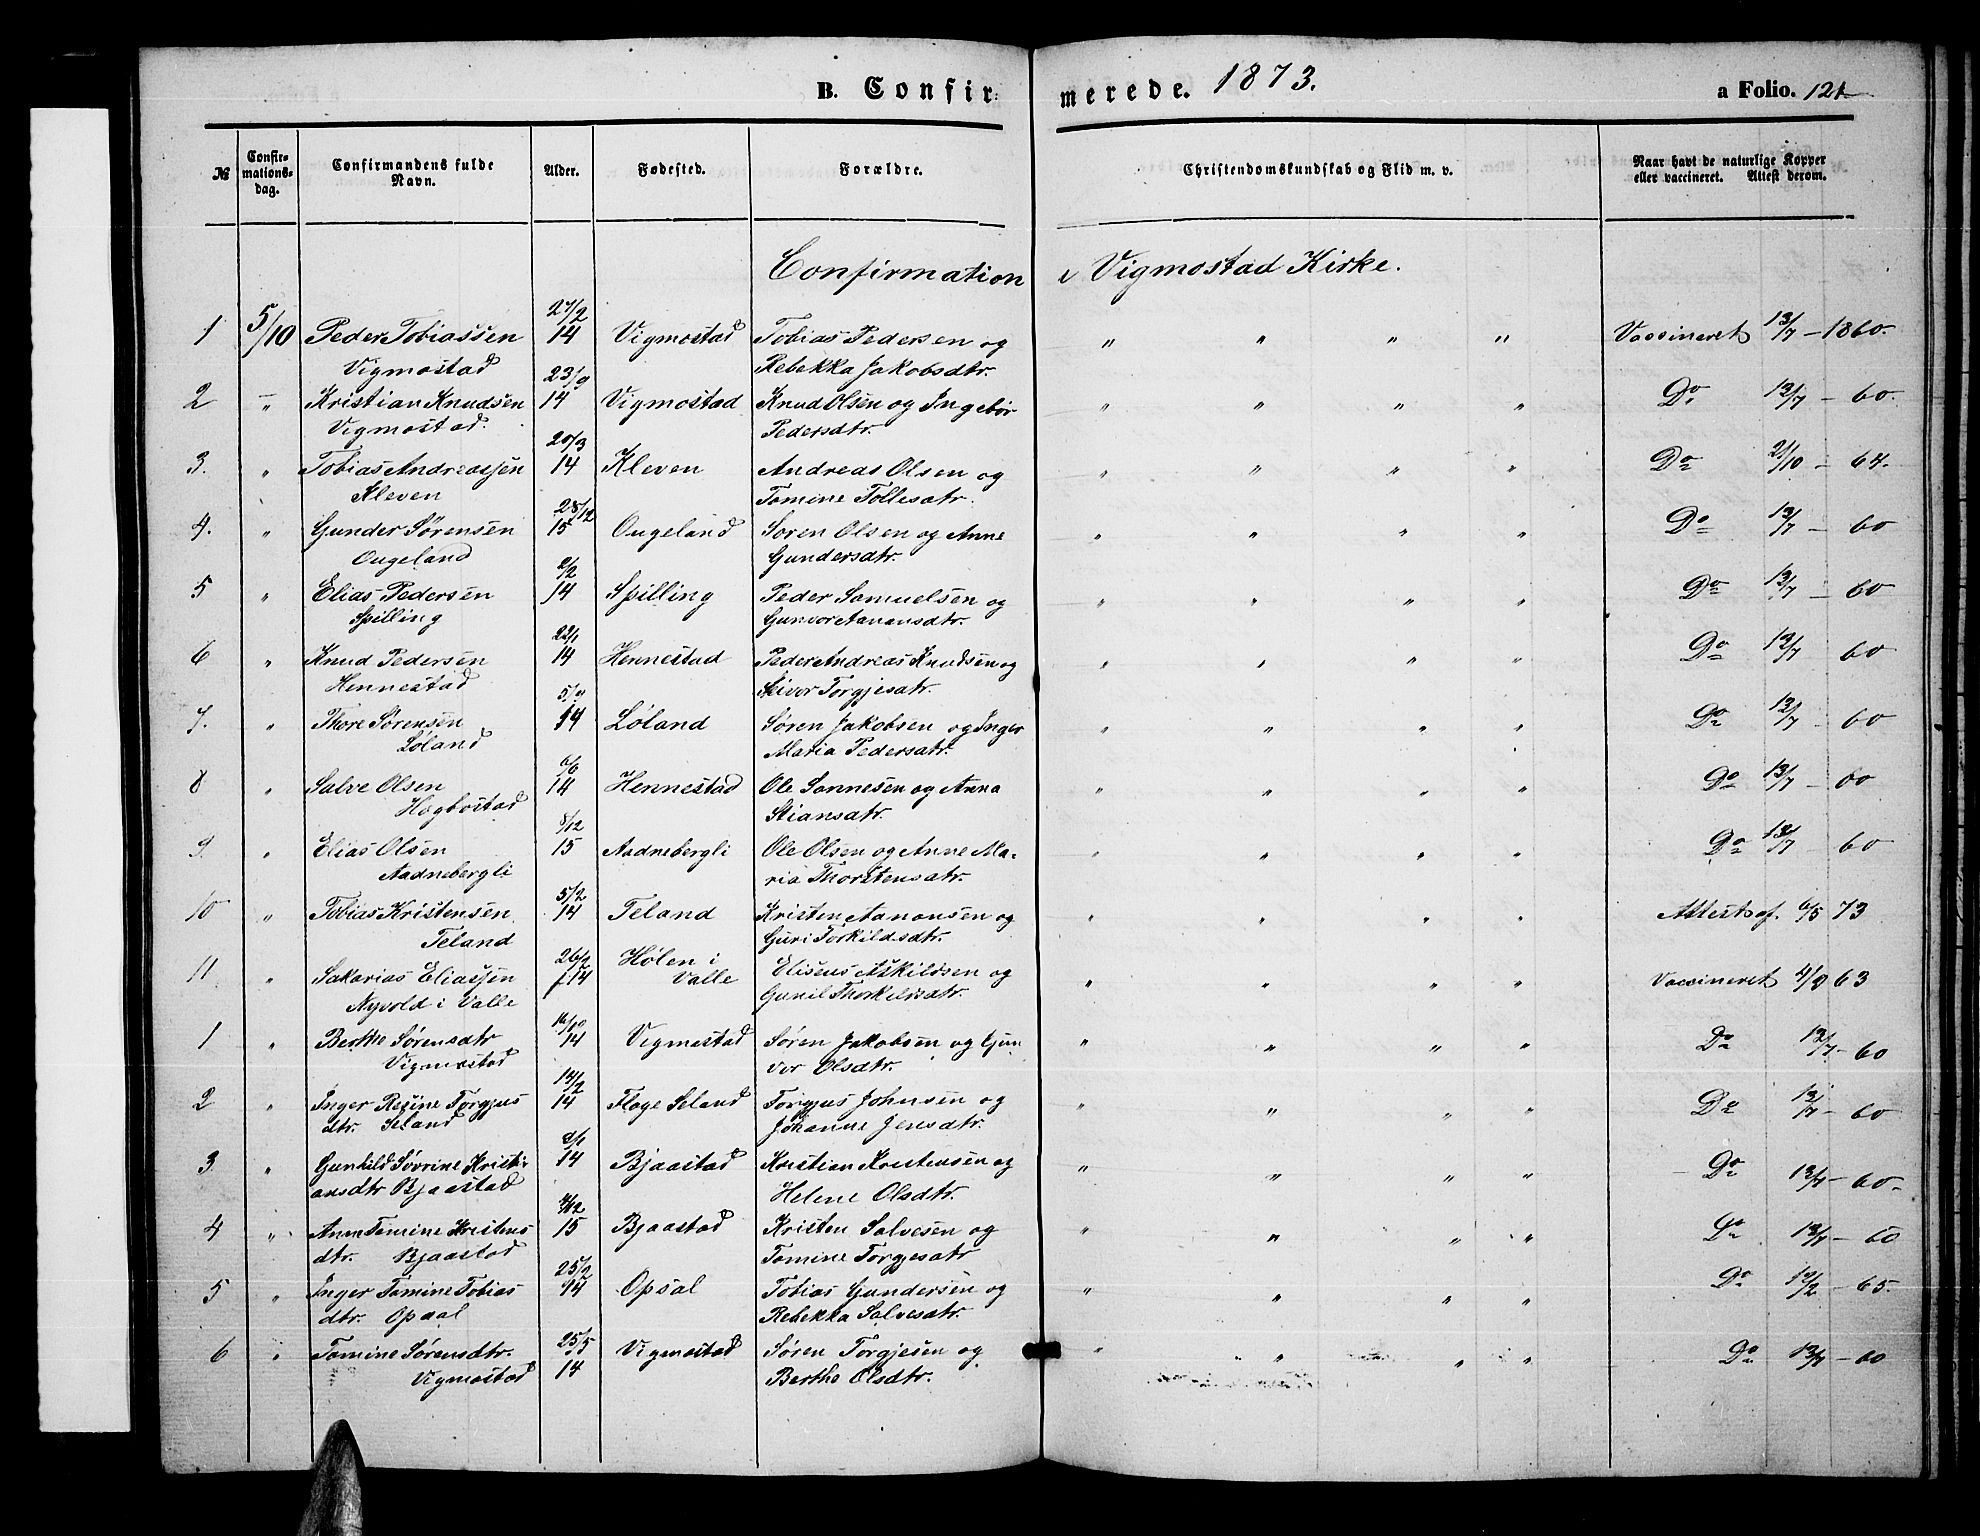 B. Confirmerede. 1873. a Folio. 121
№ Confirmationsdag. Confirmandens fulde Navn. Alder. Fødested. Forældre. Christendomskundskab og Flid m. v. Naar havt de naturlige Kopper eller vaccineret. Attest derom.
Confirmation i Vigmostad Kirke.
27/2
1 5/10 Peder Tobiassen 14 Vigmostad Tobias Pedersen og " " " " Vaccineret 13/7 – 1860.
Vigmostad Rebekka Jakobsdtr.
23/9
2 " Kristian Knudsen 14 Vigmostad Knud Olsen og Ingebor " " " " Do 13/7 – 60.
Vigmostad Pedersdtr.
20/3
3. " Tobias Andreassen 14 Kleven Andreas Olsen og " " " " Do 21/10 – 64.
Kleven Tomine Tollesdtr.
28/12
4. " Gunder Sørensen 15 Ougeland Soren Olsen og Anne " " " " Do 13/7 – 60
Ougeland Gundersdtr.
2/2
5 " Elias Pedersen 14 Spilling Peder Samuelsen og " " " " Do 13/7 – 60
Spilling Gunvor Aanansdtr.
22/1
6 " Knud Pedersen 14 Hennestad Peder Andreas Knudsen og " " " " Do 13/7 60
Hennestad Torgjesdtr.
7. " Thore Sørensen 14 Løland Søren Jakobsen og Inger " " " " Do 13/7 60
Løland Maria Pedersdtr.
6/6
8 " Salve Olsen 14 Hennestad Ole Sannesen og Anna " " " " Do 13/7 – 60
Høgbostad Stiansdtr.
8/12
9. " Elias Olsen 15 Aadnebergli Ole Olsen og Anne Ma- " " " " Do 13/7 – 60
Aadnebergli ria Thorstensdtr.
5/2
10 " Tobias Kristensen 14 Teland Kristen Aanonsen og " " " " Attest af 6/5 73
Teland Guri Torkildsdtr.
26/2 Hølen i
11 " Sakarias Eliassen 14 Valle Eliseus Askildsen og " " " " Vaccineret 4/9 63
Nyvold i Valle Gunil Thorkildsdtr.
16/10
1 " Berthe Sørensdtr 14 Vigmostad Søren Jakobsen og Gun " " " " Do 13/7 – 60
Vigmostad vor Olsdtr.
14/2
2 " Inger Regine Torgjus 14 Floge Seland Torgjus Johnsen og " " " " Do 13/7 – 60
dtr. Seland Johanne Jensdtr.
3 " Gunhild Søvrine Kristi- 14 Bjaastad Kristian Kristensen og " " " " Do 13/7 – 60-
ansdtr Bjaastad Helene Olsdtr.
4 " Anne Tomine Kristens 15 Bjaastad Kristen Salvesen og " " " " Do 13/7 – 60
dtr. Bjaastad Tomine Torgjesdtr
25/2
5 " Inger Tomine Tobias 14 Opsal Tobias Gundersen og " " " " Do – 65.
dtr. Opsal Rebekka Salvesdtr.
25/5
6 " Tomine Sørensdtr. 14 Vigmostad Søren Torgjesen og " " " " Do 13/7 – 60
Vigmostad Berthe Olsdtr.